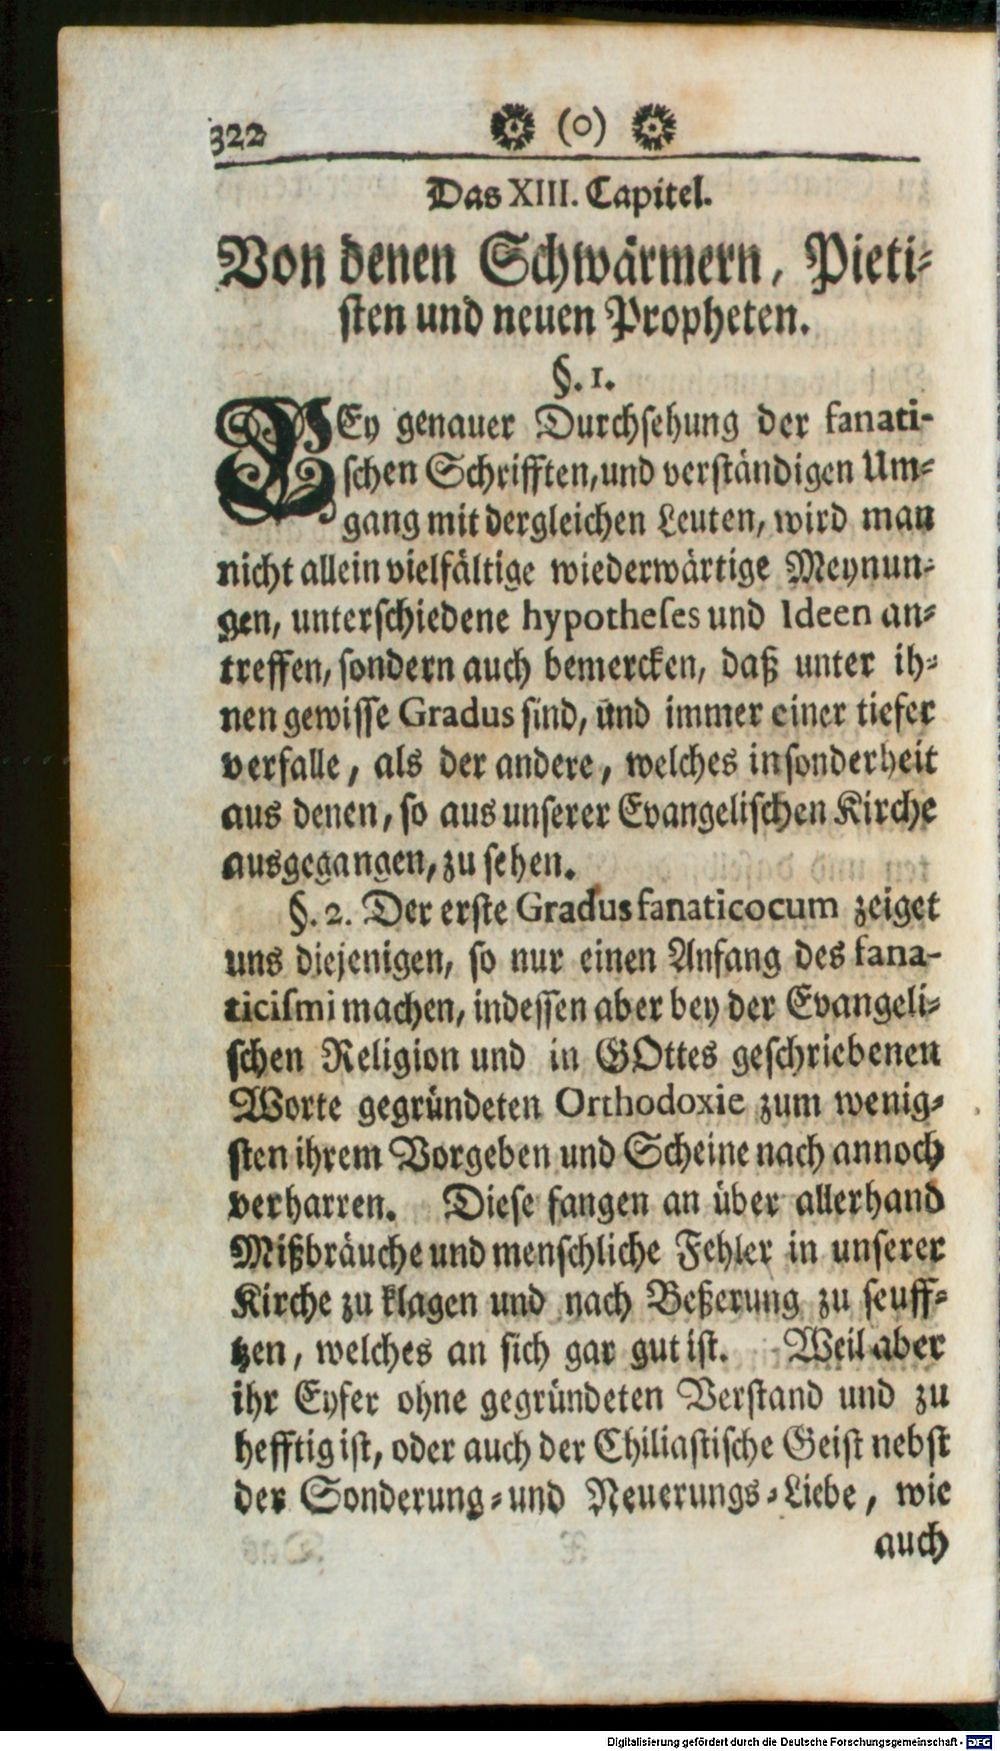 322 (o)
Das XIII. Capitel.
Von denen Schwärmern, Pieti-
sten und neuen Propheten.
§. 1.
BEy genauer Durchsehung der fanati-
schen Schrifften, und verständigen Um-
gang mit dergleichen Leuten, wird man
nicht allein vielfältige wiederwärtige Meynun-
gen, unterschiedene hypotheses und Ideen an-
treffen, sondern auch bemercken, daß unter ih-
nen gewisse Gradus sind, und immer einer tiefer
verfalle, als der andere, welches insonderheit
aus denen, so aus unserer Evangelischen Kirche
ausgegangen, zu sehen.
§. 2. Der erste Gradus fanaticocum zeiget
uns diejenigen, so nur einen Anfang des fana-
ticismi machen, indessen aber bey der Evangeli-
schen Religion und in GOttes geschriebenen
Worte gegründeten Orthodoxie zum wenig-
sten ihrem Vorgeben und Scheine nach annoch
verharren. Diese fangen an über allerhand
Mißbräuche und menschliche Fehler in unserer
Kirche zu klagen und nach Beßerung zu seuff-
tzen, welches an sich gar gut ist. Weil aber
ihr Eyfer ohne gegründeten Verstand und zu
hefftig ist, oder auch der Chiliastische Geist nebst
der Sonderung- und Neuerungs-Liebe, wie
auch
Digitalisierung gefördert durch die Deutsche Forschungsgemeinschaft - DFG